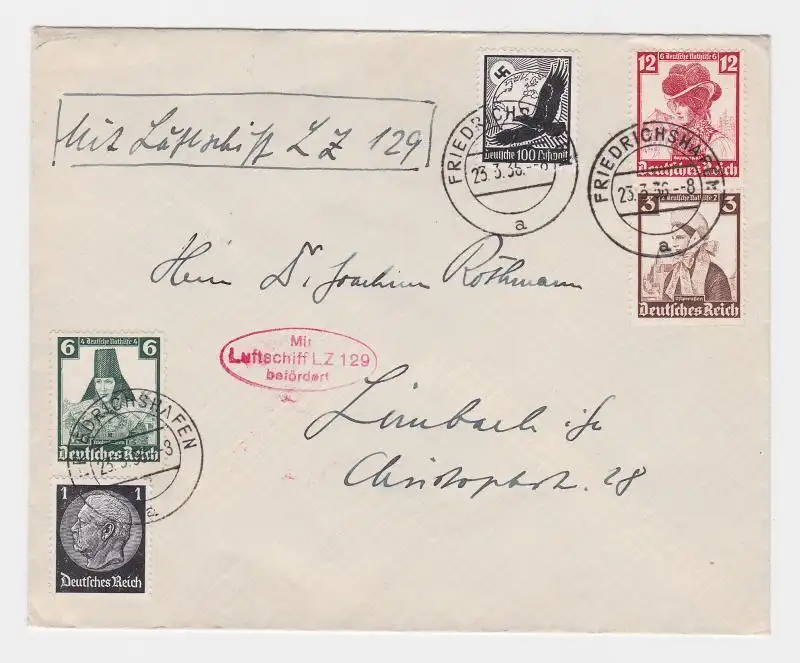 Mit Luftschiff LZ 129
Deutsche 100 Luftpost
FRIEDRICHSHAFEN
23.3.36.--8
a
12 6 Deutsche Nothilfe 6 12
Deutsches Reich
FRIEDRICHSHAFEN
23.3.36.--8
a
3 2 Deutsche Nothilfe 2 3
Ostpreußen
Deutsches Reich
Herrn Dr. Joachim Rothmann
Mit
Luftschiff LZ 129
befördert
6 4 Deutsche Nothilfe 4 6
Deutsches Reich
FRIEDRICHSHAFEN
23.3.36.--8
a
Limbach i/Sa
Christophstr. 28
1 1
Deutsches Reich